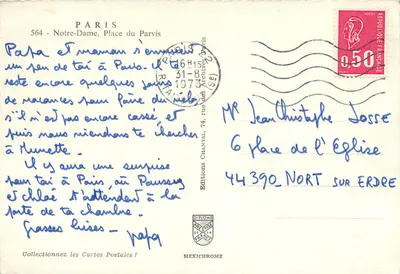 PARIS
564 - Notre-Dame, Place du Parvis
Papa et maman s'ennuient
un peu de toi à Paris. Il te
reste encore quelques jours
de vacances pour faire du vélo
s'il n'est pas encore cassé, et
puis nous viendrons te chercher
à
Il y aura une surprise
pour toi à Paris, au
et chloé t'attendent à la
porte de ta chambre.
Grosses bises -
papa
Collectionnez les Cartes Postales !
Editions CHANTAL, 74, rue des Archives, PARIS
MEXICHROME
PARIS
16H15
31-8
1973
0,50
Mr Jean Christophe JOSSE
6 place de l'Église
44390 NORT SUR ERDRE